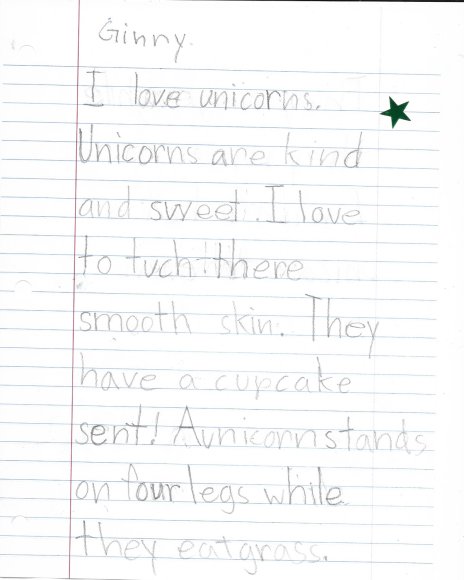 Ginny
I love unicorns.
Unicorns are kind
and sweet. I love
to tuch there
smooth skin. They
have a cupcake
sent! A unicorn stands
on four legs while
they eat grass.